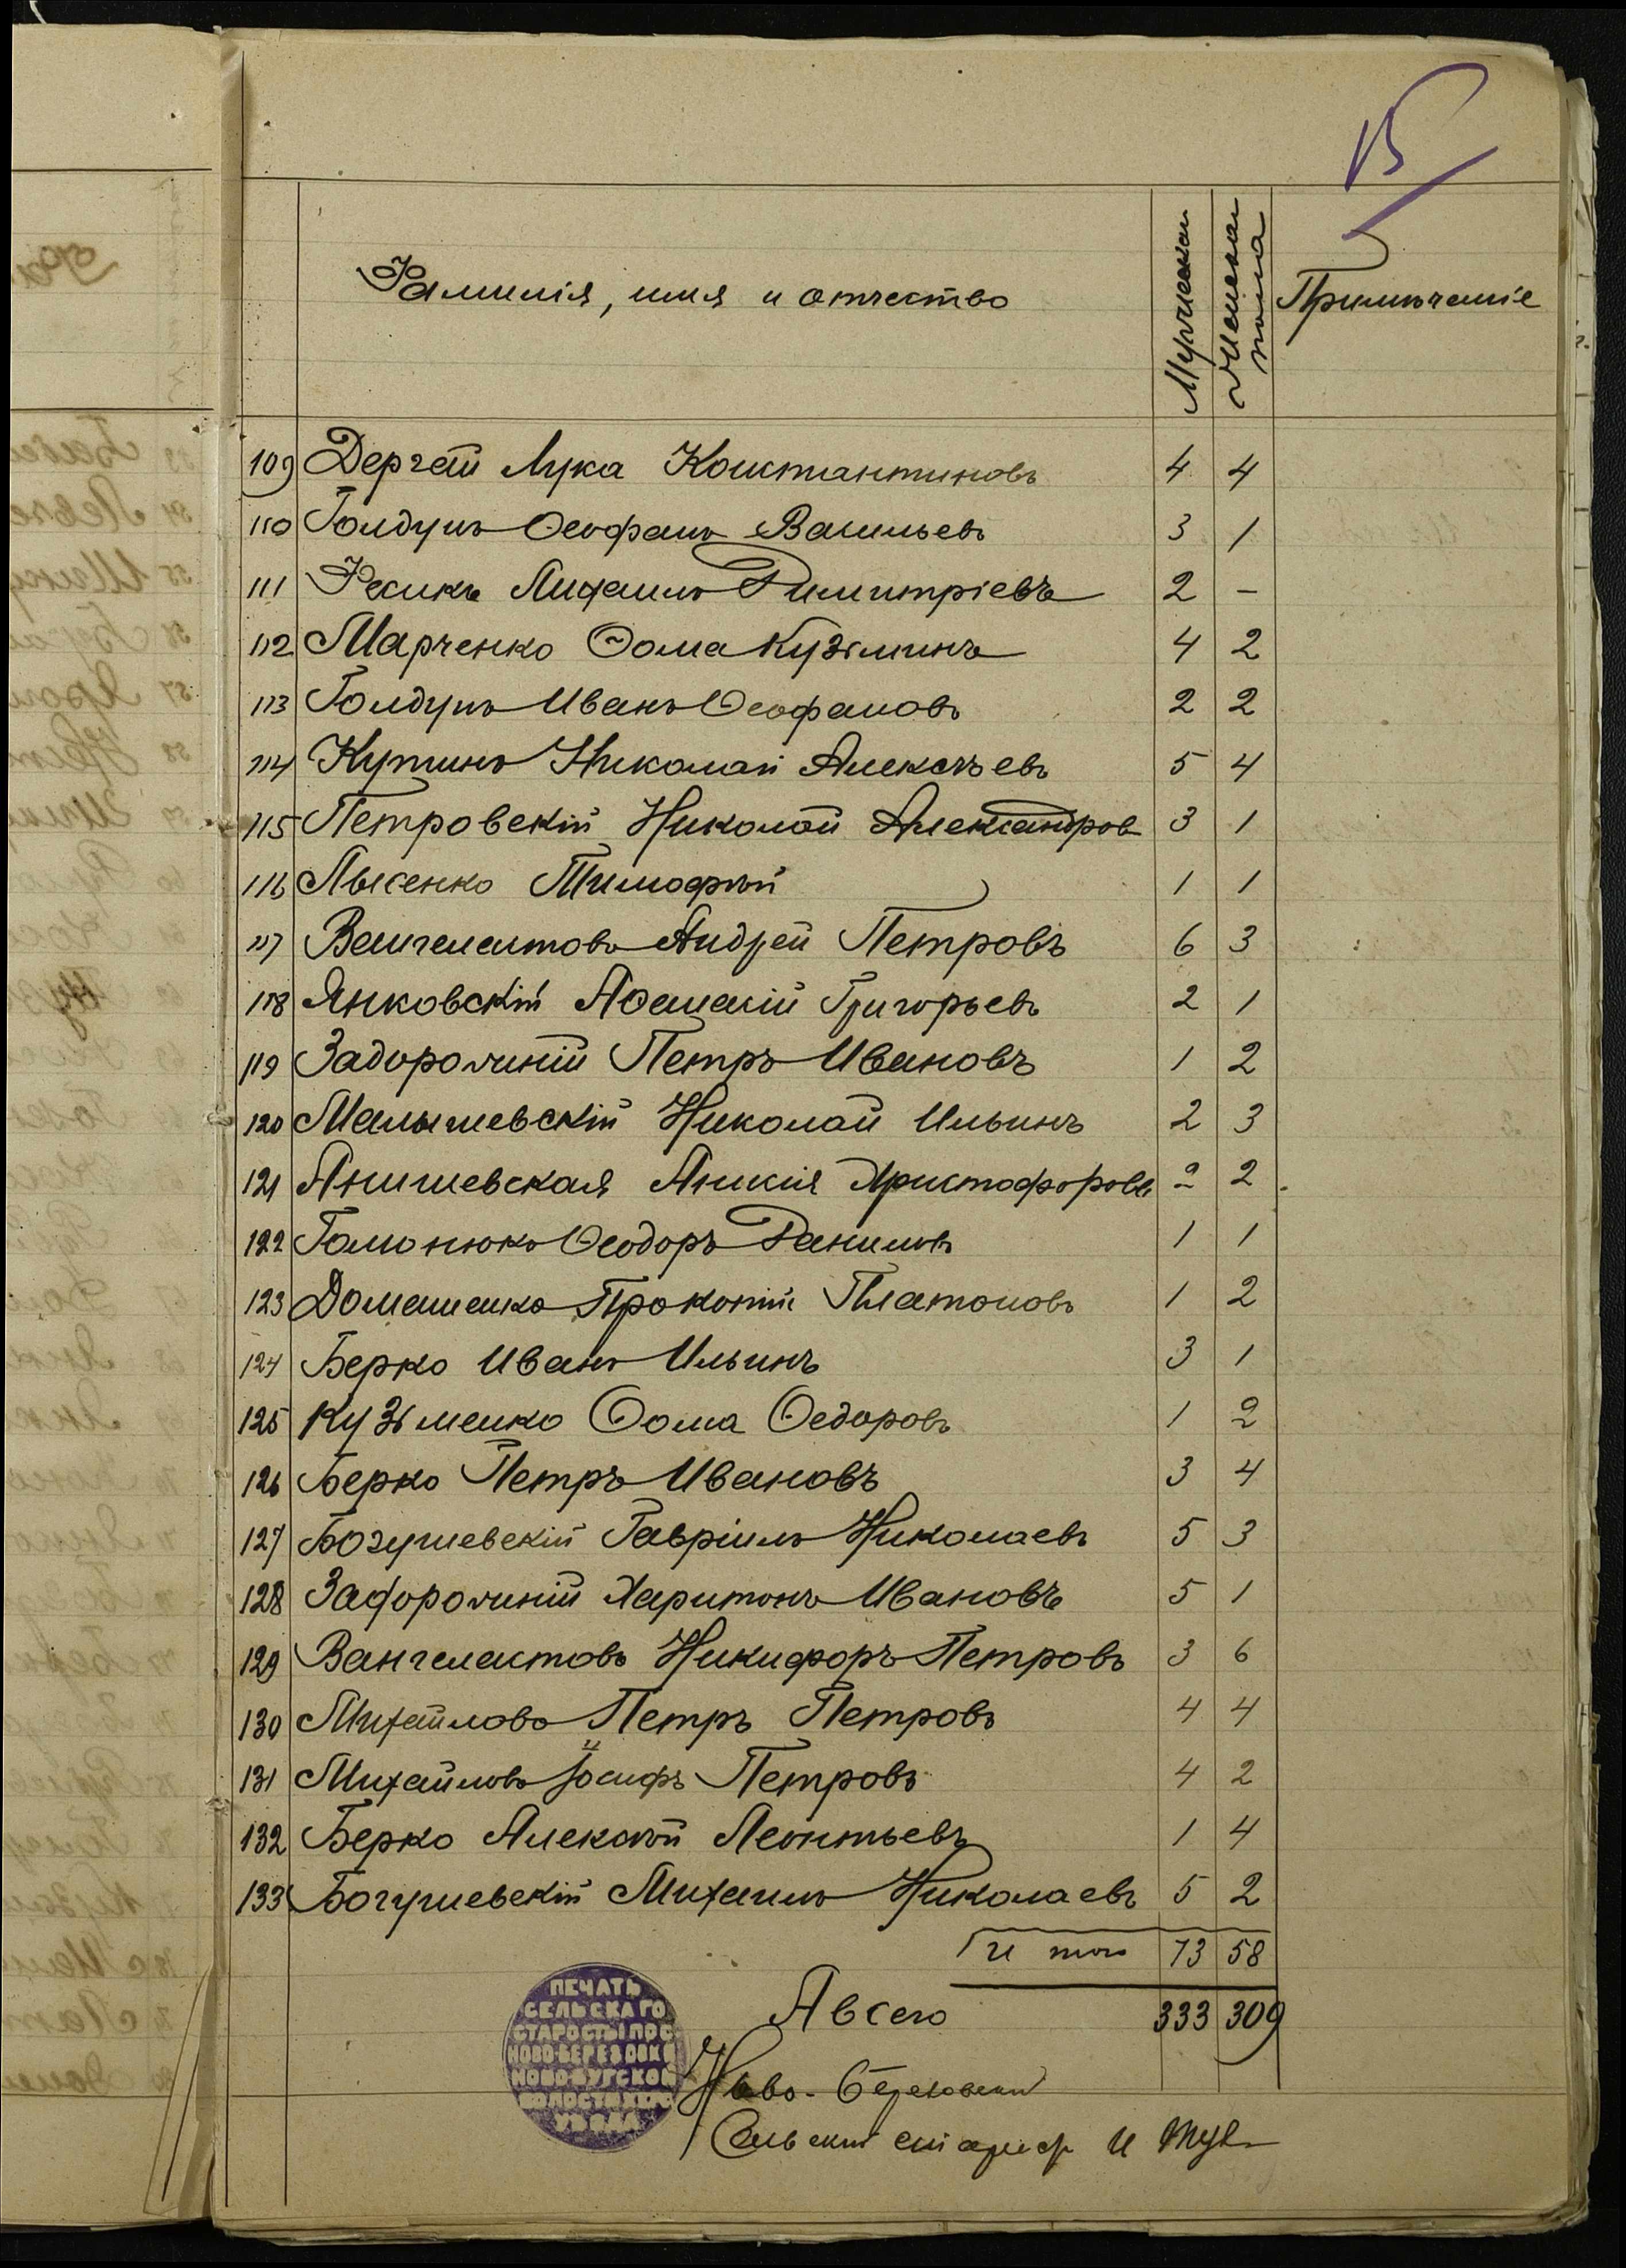 Фамилія, имя и отчество Мужескаго Женскаго пола Примѣчаніе
109 Дергай Лука Константиновъ 4 4
110 Голдунъ Ѳеофанъ Васильевъ 3 1
111 Фесикъ Михаилъ Димитріевъ 2 -
112 Марченко Ѳома Кузьминъ 4 2
113 Голдунъ Иванъ Ѳеофановъ 2 2
114 Купинъ Николай Алексѣевъ 5 4
115 Петровскій Николай Александров 3 1
116 Лысенко Тимофѣй 1 1
117 Вангелактовъ Андрей Петровъ 6 3
118 Янковскій Афанасій Григорьевъ 2 1
119 Задорожній Петръ Ивановъ 1 2
120 Малышевскій Николай Ильинъ 2 3
121 Янишевская Анисія Христофорова 2 2
122 Гомонюкъ Ѳеодоръ Даниловъ 1 1
123 Домашенко Прокопій Платоновъ 1 2
124 Берко Иванъ Ильинъ 3 1
125 Кузьменко Ѳома Ѳедоровъ 1 2
126 Берко Петръ Ивановъ 3 4
127 Богушевскій Гавріилъ Николаевъ 5 3
128 Задорожній Харитонъ Ивановъ 5 1
129 Вангелактовъ Никифоръ Петровъ 3 6
130 Михайловъ Петръ Петровъ 4 4
131 Михайловъ Іосифъ Петровъ 4 2
132 Берко Алексѣй Леонтьевъ 1 4
133 Богушевскій Михаилъ Николаевъ 5 2
Итого 73 58
А всего 333 309
ПЕЧАТЬ
СЕЛЬСКАГО
СТАРОСТЫ ПОС
НОВО-БЕРЕЗОВКИ
НОВОБУГСКОЙ
ВОЛОСТИ ХЕРС
УѢЗДА
Ново-Березовскій
Сельскій староста И